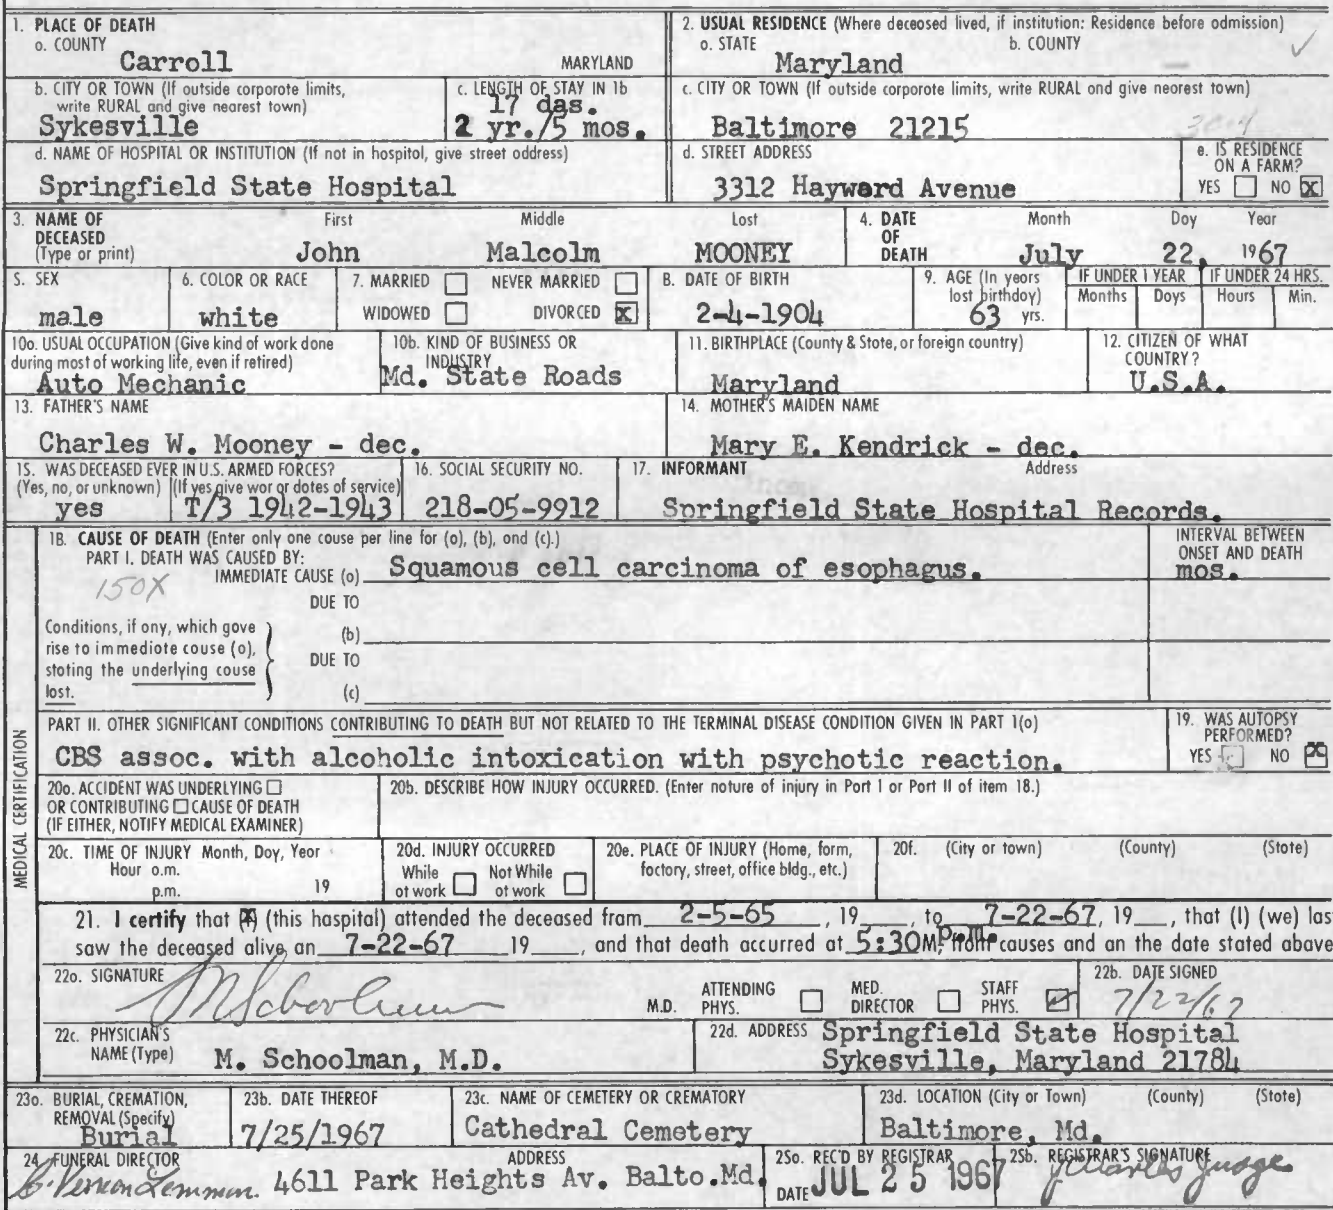 1. PLACE OF DEATH
a. COUNTY
Carroll MARYLAND
2. USUAL RESIDENCE (Where deceased lived, if institution: Residence before admission)
a. STATE b. COUNTY
Maryland
b. CITY OR TOWN (If outside corporate limits, write RURAL and give nearest town)
Sykesville
c. LENGTH OF STAY IN 1b
17 das.
2 yr./5 mos.
c. CITY OR TOWN (If outside corporate limits, write RURAL and give nearest town)
Baltimore 21215
d. NAME OF HOSPITAL OR INSTITUTION (If not in hospital, give street address)
Springfield State Hospital
d. STREET ADDRESS
3312 Hayward Avenue
e. IS RESIDENCE ON A FARM?
YES NO X
3. NAME OF DECEASED (Type or print)
First Middle Last
John Malcolm MOONEY
4. DATE OF DEATH
Month Day Year
July 22, 1967
5. SEX
male
6. COLOR OR RACE
white
7. MARRIED NEVER MARRIED
WIDOWED DIVORCED X
8. DATE OF BIRTH
2-4-1904
9. AGE (In years last birthday)
63 yrs.
IF UNDER 1 YEAR
Months Days
IF UNDER 24 HRS.
Hours Min.
10a. USUAL OCCUPATION (Give kind of work done during most of working life, even if retired)
Auto Mechanic
10b. KIND OF BUSINESS OR INDUSTRY
Md. State Roads
11. BIRTHPLACE (County & State, or foreign country)
Maryland
12. CITIZEN OF WHAT COUNTRY?
U.S.A.
13. FATHER'S NAME
Charles W. Mooney - dec.
14. MOTHER'S MAIDEN NAME
Mary E. Kendrick - dec.
15. WAS DECEASED EVER IN U.S. ARMED FORCES?
(Yes, no, or unknown) (If yes give war or dates of service)
yes T/3 1942-1943
16. SOCIAL SECURITY NO.
218-05-9912
17. INFORMANT Address
Springfield State Hospital Records.
18. CAUSE OF DEATH (Enter only one cause per line for (a), (b), and (c).)
PART I. DEATH WAS CAUSED BY:
IMMEDIATE CAUSE (a) Squamous cell carcinoma of esophagus.
INTERVAL BETWEEN ONSET AND DEATH
mos.
150X
DUE TO
(b)
DUE TO
(c)
Conditions, if any, which gave
rise to immediate cause (a),
stating the underlying cause
last.
MEDICAL CERTIFICATION
PART II. OTHER SIGNIFICANT CONDITIONS CONTRIBUTING TO DEATH BUT NOT RELATED TO THE TERMINAL DISEASE CONDITION GIVEN IN PART 1(a)
CBS assoc. with alcoholic intoxication with psychotic reaction.
19. WAS AUTOPSY PERFORMED?
YES NO X
20a. ACCIDENT WAS UNDERLYING
OR CONTRIBUTING CAUSE OF DEATH
(IF EITHER, NOTIFY MEDICAL EXAMINER)
20b. DESCRIBE HOW INJURY OCCURRED. (Enter nature of injury in Part I or Part II of item 18.)
20c. TIME OF INJURY Month, Day, Year
Hour a.m.
p.m. 19
20d. INJURY OCCURRED
While at work Not While at work
20e. PLACE OF INJURY (Home, farm, factory, street, office bldg., etc.)
20f. (City or town) (County) (State)
21. I certify that (X) (this hospital) attended the deceased from 2-5-65, 19__, to 7-22-67, 19__, that (I) (we) las
saw the deceased alive on 7-22-67 19__, and that death occurred at 5:30M, p.m. from causes and on the date stated above
22a. SIGNATURE
M Schoolman M.D.
ATTENDING PHYS. MED. DIRECTOR STAFF PHYS.
22b. DATE SIGNED
7/22/67
22c. PHYSICIAN'S NAME (Type)
M. Schoolman, M.D.
22d. ADDRESS
Springfield State Hospital
Sykesville, Maryland 21784
23a. BURIAL, CREMATION, REMOVAL (Specify)
Burial
23b. DATE THEREOF
7/25/1967
23c. NAME OF CEMETERY OR CREMATORY
Cathedral Cemetery
23d. LOCATION (City or Town) (County) (State)
Baltimore, Md.
24. FUNERAL DIRECTOR ADDRESS
C. Vernon Lemmon. 4611 Park Heights Av. Balto.Md.
25a. REC'D BY REGISTRAR
DATE JUL 25 1967
25b. REGISTRAR'S SIGNATURE
J Charles Judge